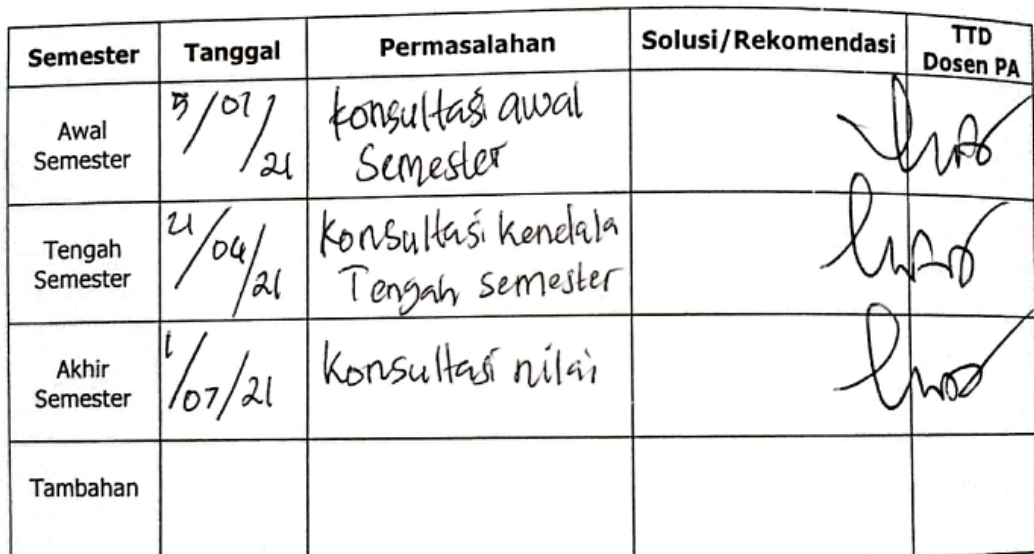 Semester Tanggal Permasalahan Solusi/Rekomendasi TTD
Dosen PA
Awal
Semester
5/01/21
konsultasi awal
Semester
Tengah
Semester
21/04/21
Konsultasi kendala
Tengah semester
Akhir
Semester
1/07/21
Konsultasi nilai
Tambahan